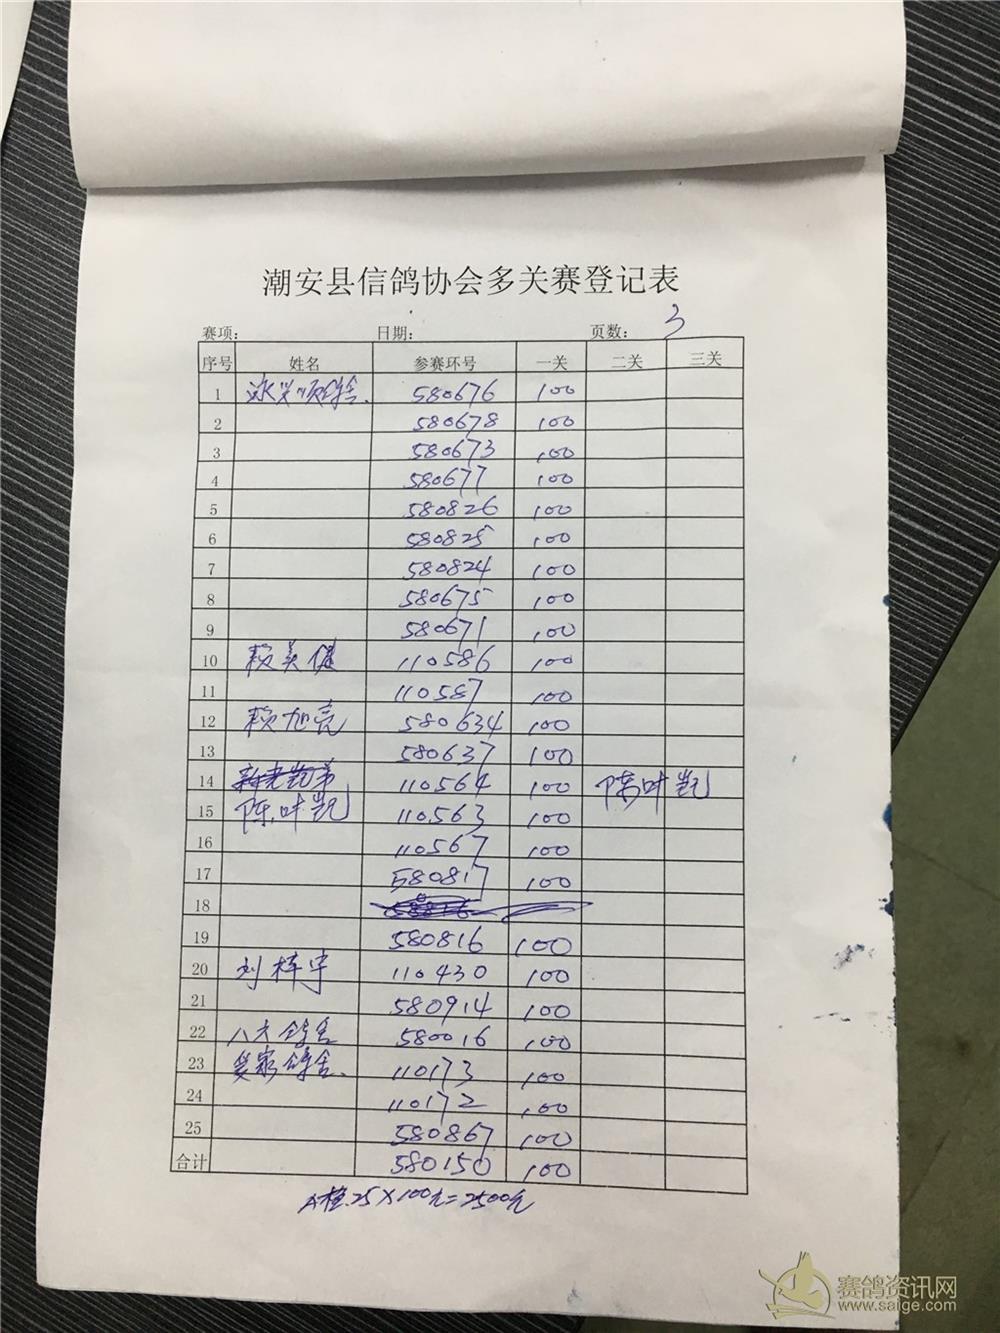 潮安县信鸽协会多关赛登记表
赛项: 日期: 页数: 3
序号 姓名 参赛环号 一关 二关 三关
1 鸽舍. 580676 100
2 580678 100
3 580673 100
4 580677 100
5 580826 100
6 580825 100
7 580824 100
8 580675 100
9 580671 100
10 赖美健 110586 100
11 110587 100
12 赖旭亮 580634 100
13 580637 100
14 110564 100 陈叶凯
15 陈叶凯 110563 100
16 110567 100
17 580817 100
18
19 580816 100
20 刘梓宇 110430 100
21 580914 100
22 八六鸽舍 580016 100
23 鸽舍. 110173 100
24 110172 100
25 580867 100
合计 580150 100
A档.25×100元=2500元
赛鸽资讯网
www.saige.com